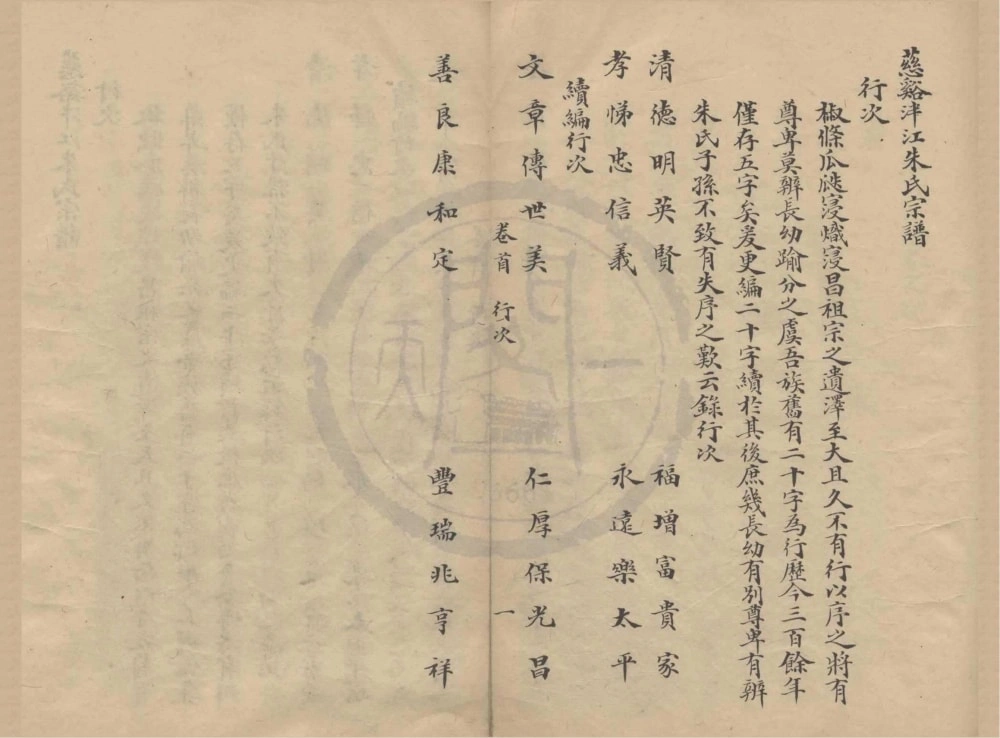 慈谿沣江朱氏宗譜
行次
椒條瓜瓞寖熾寖昌祖宗之遺澤至大且久不有行以序之將有
尊卑莫辨長幼踰分之虞吾族舊有二十字為行歷今三百餘年
僅存五字矣爰更編二十字續於其後庶幾長幼有別尊卑有辨
朱氏子孫不致有失序之歎云錄行次
清德明英賢 福增富貴家
孝悌忠信義 永遠樂太平
續編行次
文章傳世美 仁厚保光昌
卷首 行次 一
善良康和定 豐瑞兆亨祥